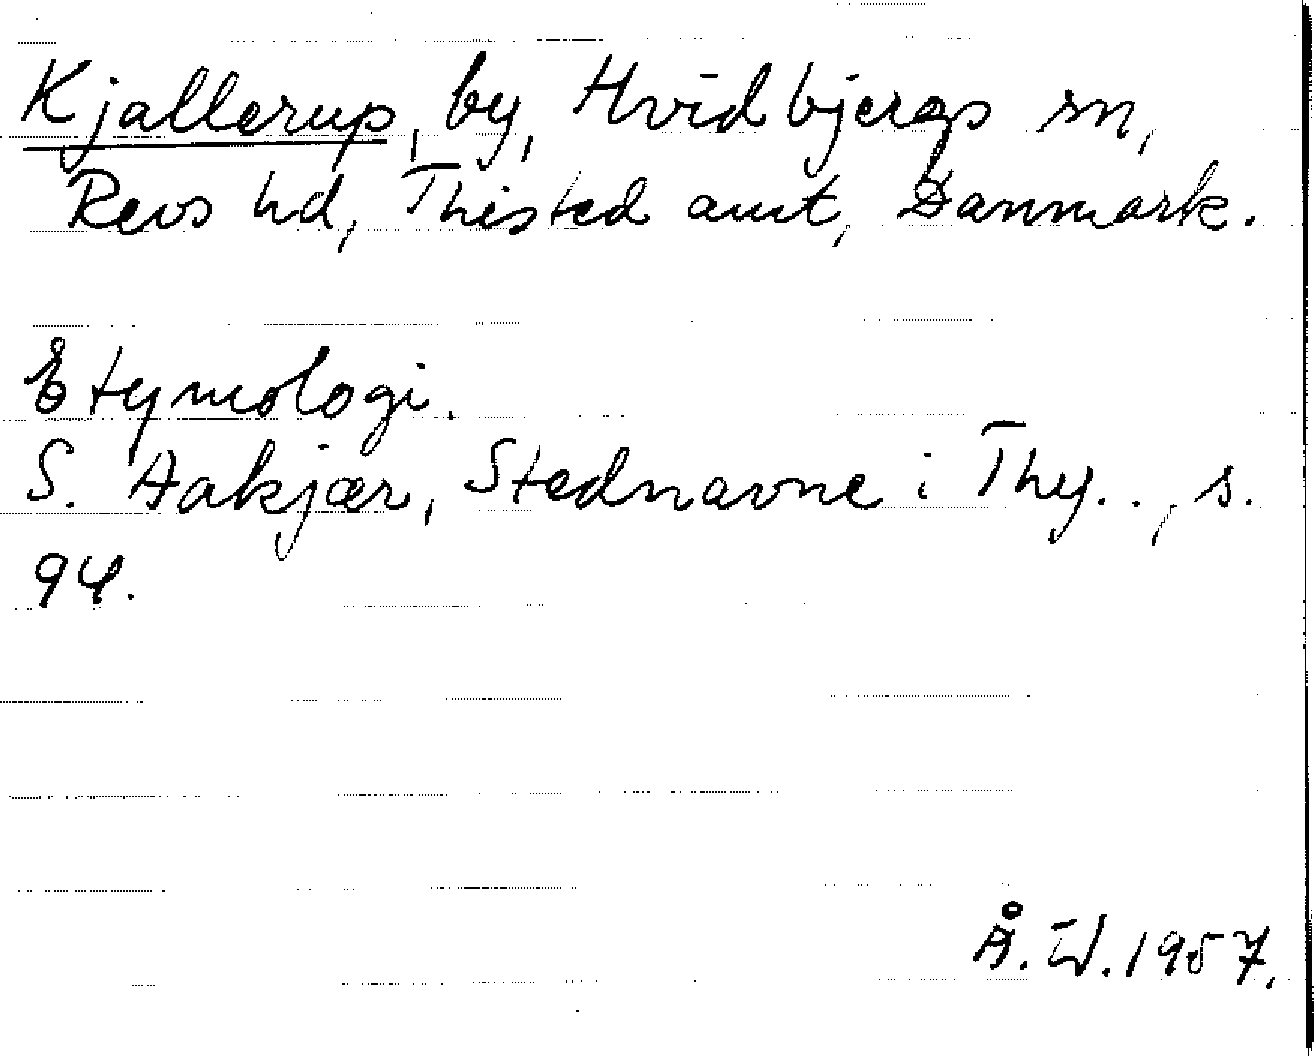 Kjallerup, by, Hvidbjergs sn,
Revs hd, Thisted amt, Danmark.
Etymologi.
S. Aakjær, Stednavne i Thy.., s.
94.
Å. W. 1957.